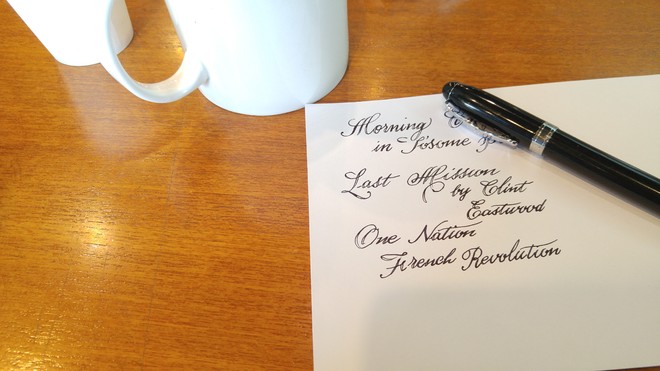 Morning
in So'some
Last Mission
by Clint
Eastwood
One Nation
French Revolution